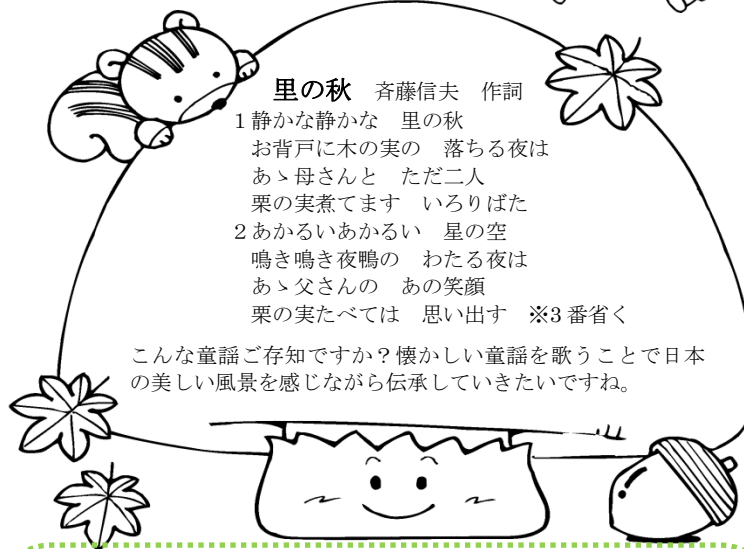 里の秋　斉藤信夫　作詞
1静かな静かな　里の秋
お背戸に木の実の　落ちる夜は
あゝ母さんと　ただ二人
栗の実煮てます　いろりばた
2あかるいあかるい　星の空
鳴き鳴き夜鴨の　わたる夜は
あゝ父さんの　あの笑顔
栗の実たべては　思い出す　※3番省く
こんな童謡ご存知ですか？懐かしい童謡を歌うことで日本
の美しい風景を感じながら伝承していきたいですね。